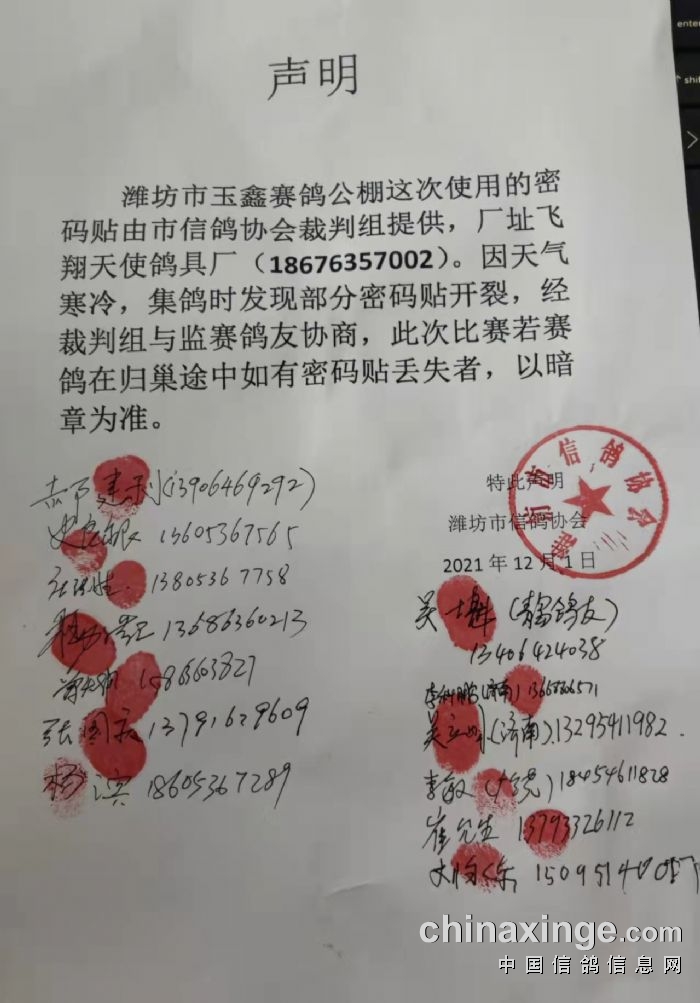 声明
潍坊市玉鑫赛鸽公棚这次使用的密
码贴由市信鸽协会裁判组提供，厂址飞
翔天使鸽具厂（18676357002）。因天气
寒冷，集鸽时发现部分密码贴开裂，经
裁判组与监赛鸽友协商，此次比赛若赛
鸽在归巢途中如有密码贴丢失者，以暗
章为准。
特此声明
潍坊市信鸽协会
2021 年 12 月 1 日
潍坊市信鸽协会
(13906469292)
13605367565
13805367758
13686360213
张国庆 13791629609
杨滨 18605367289
吴 (青岛鸽友)
13406424038
(济南)
吴 (济南) 13295411982
李敏 18454611828
崔 13793326112
enter
shif
chinaxinge.com
中国信鸽信息网